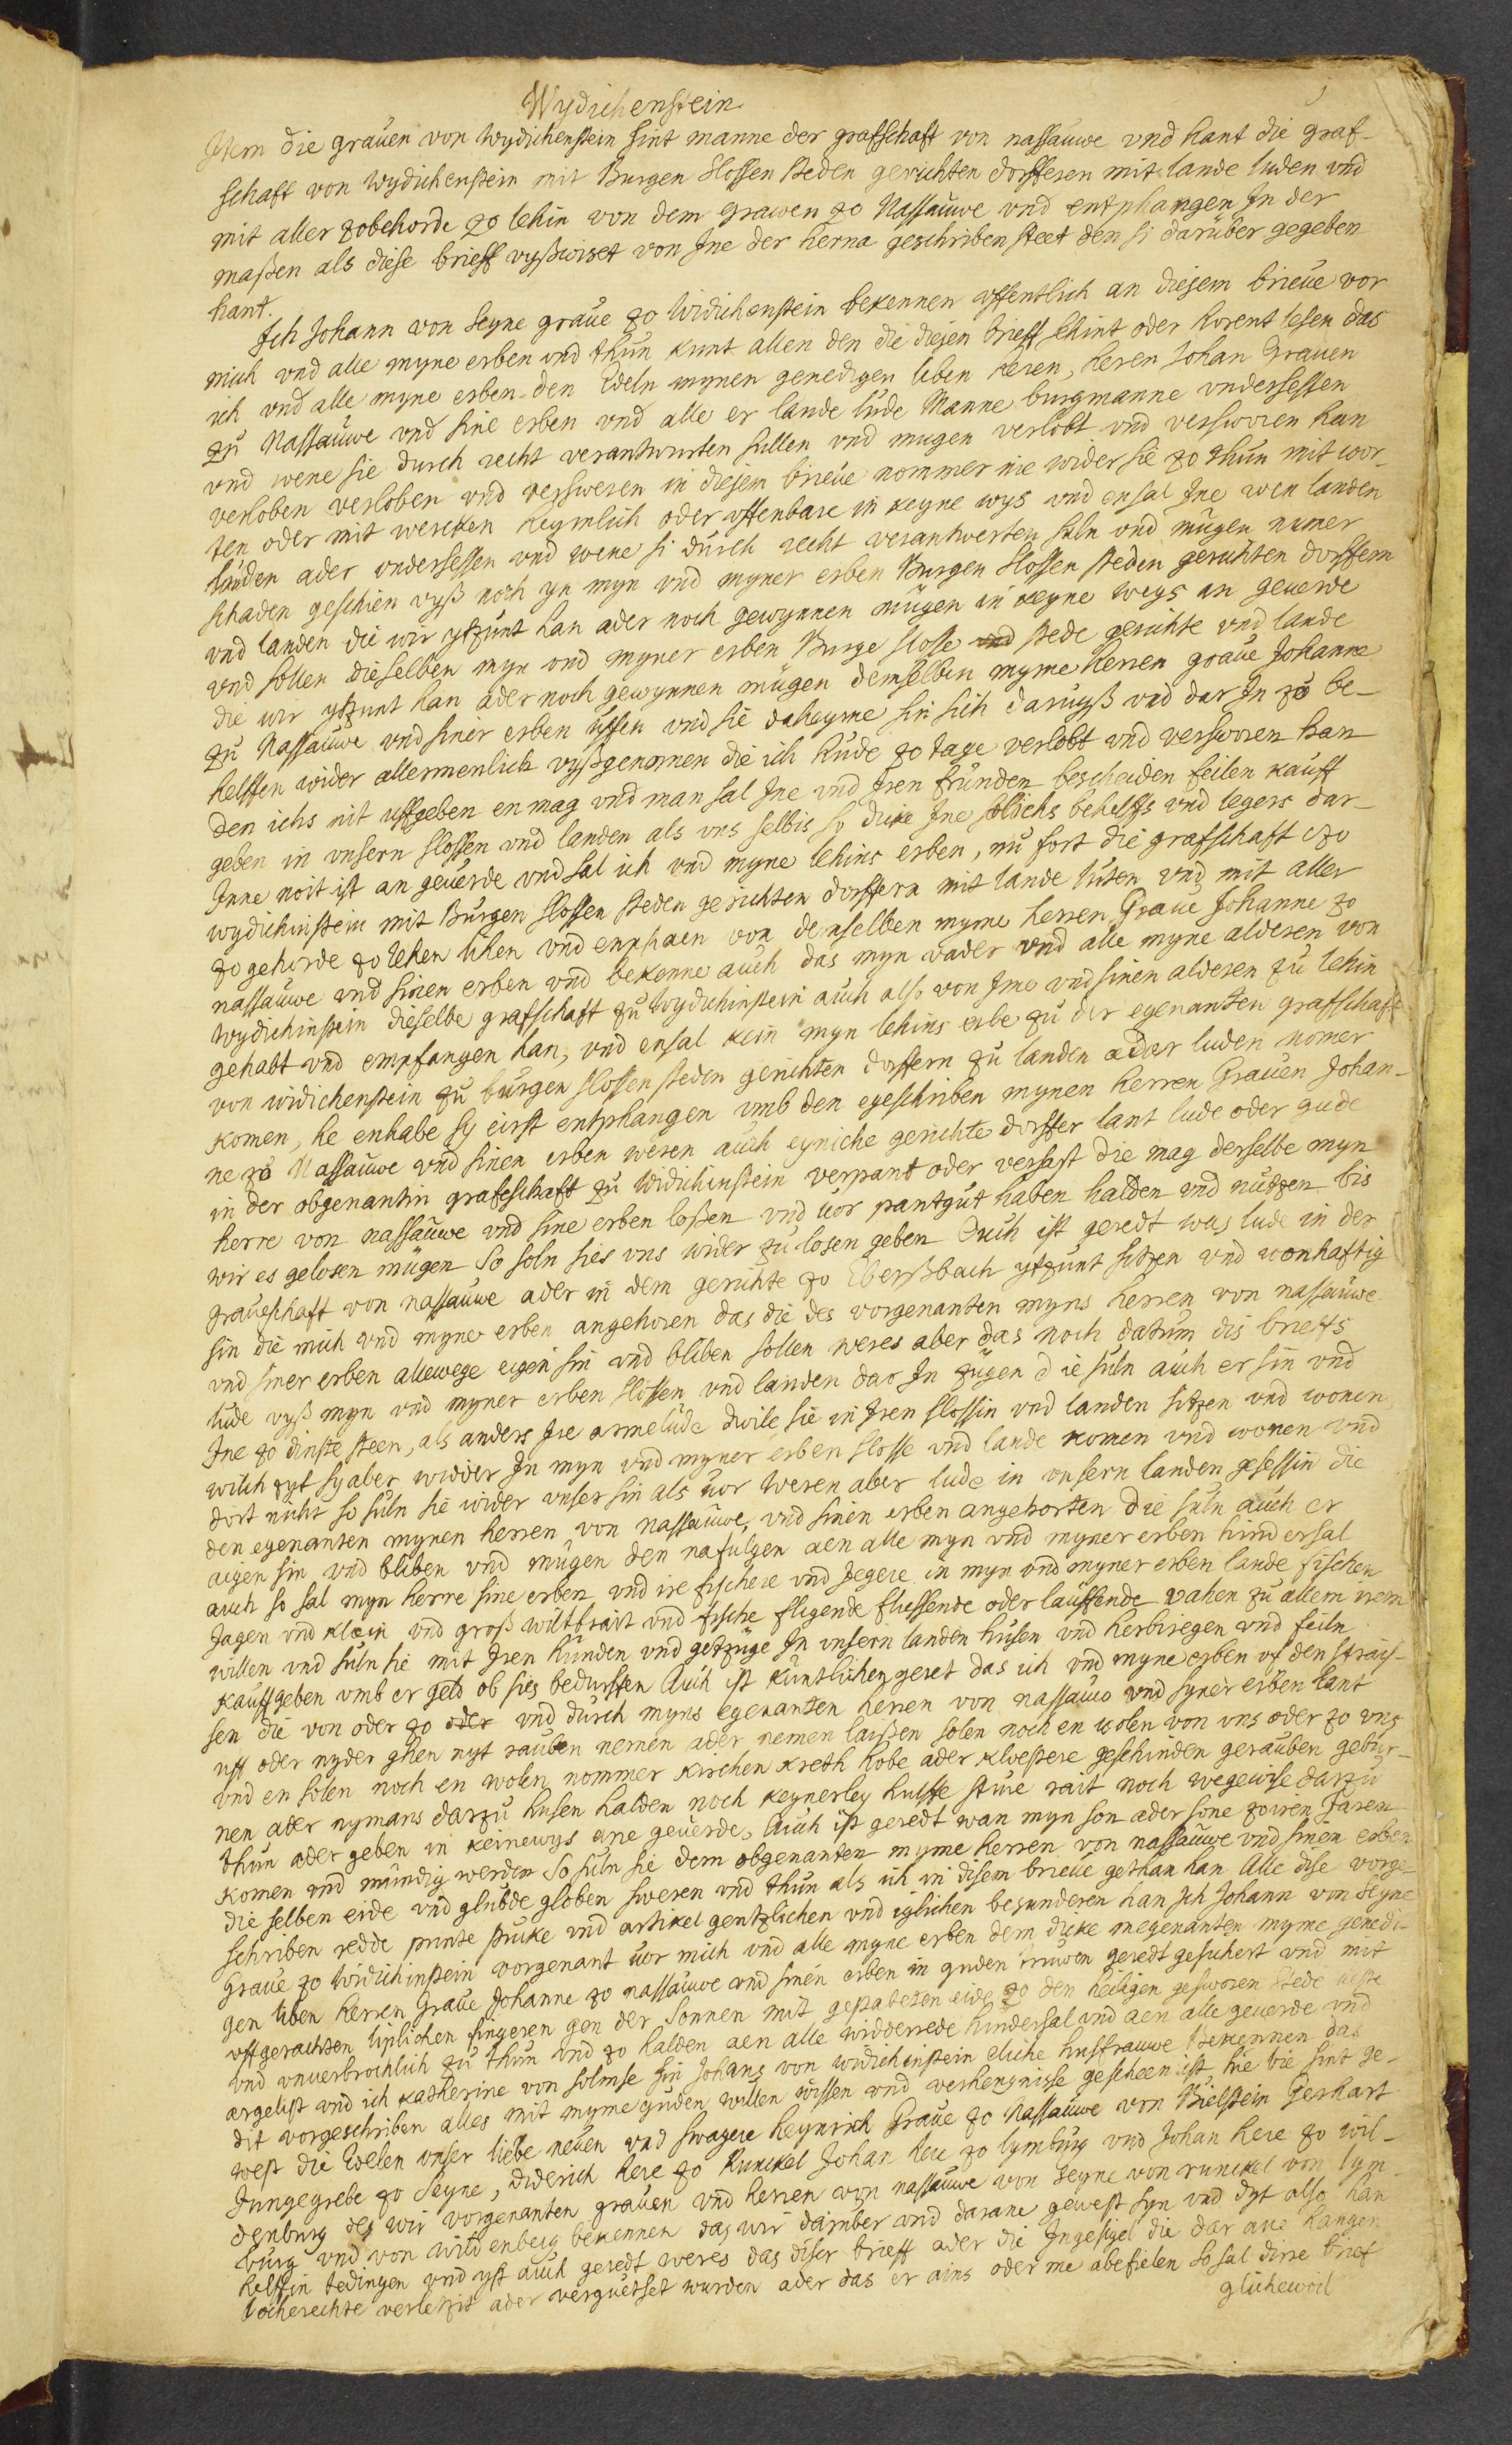 Wydichenstein
Item die grauen von Wydichenstein sint manne der grafschaft von nassauwe vnd hant die graf-
schaft von Wydichenstein mit Burgen Slossen steden gerichten dorfferen mit lande luden vnd
mit aller zobehorde zo lehin von dem grawen zo Nassauwe vnd entphangen In der
maßen als diese brieff vyßwiset von Ine der herna geschriben steet den si darüber gegeben
hant.
Ich Johann von Seyne graue zo Widichenstein bekennen offentlich an diesem brieue vor
mich vnd alle myne erben vnd thun kunt allen den die diesen brieff sehint oder horent lesen das
ich vnd alle myne erben den Edeln mynen genedigen lieben heren, heren Johan Grauen
zu Nassauwe vnd sine erben vnd alle er lande lude Manne burgmanne vndersessen
vnd wene sie durch recht verantwurten sullen vnd mugen verlobt vnd versworen han
verloben verloben vnd versweren in diesem brieue nommer nie wider sie zo thun mit wor-
ten oder mit wercken heymlich oder offenbare in keyne wys vnd ensal Ine wen landen
luden ader vndersessen vnd wene si durch recht verantwerten suln vnd mugen numer
schaden geschien vyß noch yn myn vnd myner erben Burgen Slossen steden gerichten dorffern
vnd landen die wir ytzunt han ader noch gewynnen mugen in keyne weys an geuerde
vnd sollen dieselben myn vnd myner erben Burge slosse vnd stede gerichte vnd lande
die wir ytzunt han ader noch gewynnen mügen demselben myme herren graue Johanne
zu Nassauwe vnd siner erben uffen vnd sie daheyme sin sich daruyß vnd dar In zo be-
helffen wider allermenlich vyßgenomen die ich hude zo tage verlobt vnd versworen han
den ichs nit uffgeben en mag vnd man sal Ine vnd Iren frunden bescheiden feilen kauff
geben in vnsern slossen vnd landen als vns selbis so dicke Ine solichs behelffs vnd legers dar-
Inne noit ist an geuerde vnd sal ich vnd myne lehins erben, nu fort die grafschaft czo
wydichinstein mit Burgen slossen steden gerichten dorffern mit lande luten vnd mit aller
zo gehorde zo lehen lihen vnd enphaen von demselben myme herren Graue Johanne zo
nassauwe vnd sinen erben vnd bekenne auch das myn vader vnd alle myne alderen von
Wydichinstein dieselbe grafschaft zu Wydichinstein auch also von Ime vnd sinen alderen zu lehin
gehabt vnd empfangen han, vnd ensal kein myn lehins erbe zu der egenanten grafschaft
von widichenstein zu burgen slossen steden gerichten dorffern zu landen adar luden nomer
komen, he enhabe sy eirst entphangen vmb den egeschriben mynen herren Grauen Johan-
ne zo Nassauwe vnd sinen erben weren auch eyniche gerichte dorffer lant lude oder gude
in der obgenantin grafeschaft zu Widichinstein verpant oder versast die mag derselbe myn
herre von nassauwe vnd sine erben loßen vnd uor pantgut haben halden vnd nutzen bis
wir es gelosen mügen So soln sies vns wider zu losen geben Auch ist geredt was lude in der
graueschaft von nassauwe ader in dem gerichte zo Eberßbach ytzunt sitzen vnd wonhaftig
sin die mich vnd myne erben angehoren das die des vorgenanten myns herren von nassauwe
vnd siner erben allewege eigen sin vnd bliben sollen weres aber das noch datum dis brieffs
lude vyß myn vnd myner erben slossen vnd landen dar In zügen die suln auch er sin vnd
Ine zo dinste steen, als anders Ire armelüde dwile sie in Iren slossin vnd landen sitzen vnd wonen
wilch zyt sy aber widder In myn vnd myner erben slosse vnd lande komen vnd wonen vnd
dort nicht so suln sie wider vnser sin als uor weren aber lude in vnsern landen gesessin die
den egenanten mynen herren von nassauwe, vnd sinen erben angehorten die suln auch er
aigen sin vnd bliben vnd mugen den nafulgen aen alle myn vnd myner erben hindersal
auch so sal myn herre sine erben vnd ire fischere vnd Jegere in myn vnd myner erben lande fischen
Jagen vnd klein vnd groß wiltbrait vnd fische fligende fliessende oder lauffende vahen zu allem irem
willen vnd suln sie mit Iren hunden vnd getzüge In vnsern landen husen vnd herbiregen vnd feiln
kauff geben vmb er geld ob sies bedurften Auch ist kuntlichen geret das ich vnd myne erben uf den strais-
sen die von oder zo oder vnd durch myns egenanten herren von nassauwe vnd syner erben lant
uff oder nyder ghen nyt rauben nemen ader nemen laißen solen noch en wolen von vns oder zo vns
vnd en solen noch en wolen nommer kirchen kreth hobe ader kloestere geschinden gerauben gebur-
nen ader nymans darzu husen halden noch keynerley hulffe sture rait noch wegewise darzu
thun ader geben in keinewys ane geuerde. Auch ist geredt wan myn son ader sone zo iren Jaren
komen vnd mündig werden So suln sie dem obgenanten myme herren von nassauwe vnd sinen erben
die selben eide vnd glubde globen sweren vnd thun als ich in disem brieue gethan han Alle dise vorge-
schriben redde punte stucke vnd artikel gentzlichen vnd iglichen besunderen han Ich Johann von Seyne
Graue zo Widichinstein vorgenant uor mich vnd alle myne erben dem dicke megenanten myme genedi-
gen liben herren Graue Johanne zo nassauwe vnd sinen erben in guden truwen geredt gesichert vnd mit
uffgerachten liplichen fingeren gen der Sonnen mit gestabeten eide zo den heiligen gesworen Stede veste
vnd vnuerbrochlich zu thun vnd zo halden aen alle widderrede hindersal vnd aen alle geuerde vnd
argelist vnd ich katherine von solmse sin Johans von widichinstein eliche husfrauwe bekennen das
dit vorgeschriben alles mit myme guden willen wissen vnd verhengnisse gescheen ist hie bie sint ge-
west die Edelen vnser liebe neuen vnd swagere Heynrich Graue zo Nassauwe von Bielstein Gerhart
Jungegrebe zo Seyne, Diderich here zo Runckel Johan here zo lymburg vnd Johan here zo wil-
denburg des wir vorgenanten grauen vnd herren von nassauwe von seyne von runckel von lym-
burg vnd von wildenberg bekennen das wir darüber und darane gewest syn vnd dyt also han
helffin tedingen vnd yst auch geredt weres das diser brieff ader die Ingesigel die dar ane hangen
locherechte verletzit ader verguetset wurden ader das er ains oder me abefielen so sal dirre brief
glichewoil